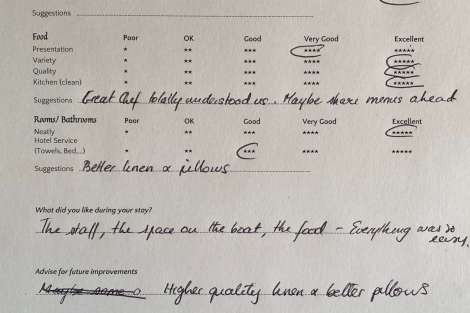 Suggestions
Food Poor OK Good Very Good Excellent
Presentation * ** *** **** *****
Variety * ** *** **** *****
Quality * ** *** **** *****
Kitchen (clean) * ** *** **** *****
Suggestions Great Chef totally understood us. Maybe share menus ahead
Rooms/ Bathrooms Poor OK Good Very Good Excellent
Neatly * ** *** **** *****
Hotel Service
(Towels, Bed,...) * ** *** **** *****
Suggestions Better linen & pillows
What did you like during your stay?
The staff, the space on the boat, the food - Everything was so
easy.
Advise for future improvements
Maybe some Higher quality linen & better pillows